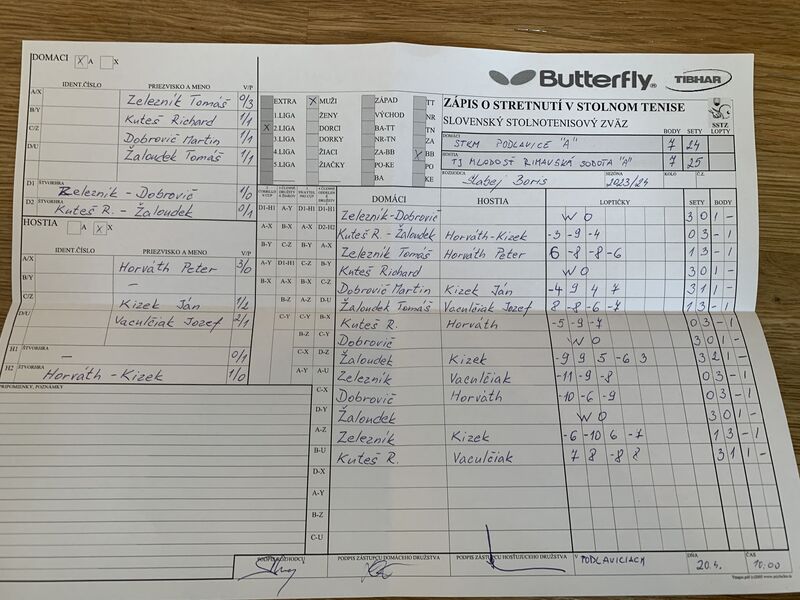 DOMACI X A X
Butterfly® TIBHAR
IDENT.ČÍSLO PRIEZVISKO A MENO V/P
A/X Železník Tomáš 0/3
B/Y Kuteš Richard 1/1
C/Z Dobrovič Martin 1/1
D/U Žaloudek Tomáš 1/1
EXTRA X MUŽI ZÁPAD TT
1.LIGA ŽENY VÝCHOD NR
X 2.LIGA DORCI BA-TT TN
3.LIGA DORKY NR-TN ZA
4.LIGA ŽIACI ZA-BB X BB
5.LIGA ŽIAČKY PO-KE PO
BA KE
ZÁPIS O STRETNUTÍ V STOLNOM TENISE
SLOVENSKÝ STOLNOTENISOVÝ ZVÄZ
SSTZ
DOMÁCI BODY SETY LOPTY
STKM PODLAVICE "A" 7 24
HOSTIA
TJ MLADOSŤ RIMAVSKÁ SOBOTA "A" 7 25
ROZHODCA Slabej Boris SEZÓNA 2023/24 KOLO Č.Z.
D1 ŠTVORHRA Železník - Dobrovič 1/0
D2 ŠTVORHRA Kuteš R. - Žaloudek 0/1
HOSTIA A X X
IDENT.ČÍSLO PRIEZVISKO A MENO V/P
A/X Horváth Peter 3/0
B/Y -
C/Z Kizek Ján 1/2
D/U Vaculčiak Jozef 2/1
H1 ŠTVORHRA - 0/1
H2 ŠTVORHRA Horváth - Kizek 1/0
PRIPOMIENKY, POZNÁMKY
DOMÁCI HOSTIA LOPTIČKY SETY BODY
D1-H1 A-Y D1-H1 D1-H1 Železník-Dobrovič W O 3 0 1 -
A-X B-X A-X D2-H2 Kuteš R.- Žaloudek Horváth-Kizek -3 -9 -4 0 3 - 1
B-Y C-Z B-Y A-X Železník Tomáš Horváth Peter 6 -8 -8 -6 1 3 - 1
A-Y D1-H1 C-Z B-Y Kuteš Richard W O 3 0 1 -
B-X A-X B-X C-Z Dobrovič Martin Kizek Ján -4 9 4 7 3 1 1 -
B-Z A-Z D-U Žaloudek Tomáš Vaculčiak Jozef 8 -8 -6 -7 1 3 - 1
C-Y C-Y B-X Kuteš R. Horváth -5 -9 -7 0 3 - 1
B-Z C-Y Dobrovič W O 3 0 1 -
C-X D-Z Žaloudek Kizek -9 9 5 -6 3 3 2 1 -
A-Y A-U Železník Vaculčiak -11 -9 -8 0 3 - 1
C-X Dobrovič Horváth -10 -6 -9 0 3 - 1
D-Y Žaloudek W O 3 0 1 -
A-Z Železník Kizek -6 -10 6 -7 1 3 - 1
B-U Kuteš R. Vaculčiak 7 8 -8 8 3 1 1 -
D-X
A-Y
B-Z
C-U
PODPIS ROZHODCU PODPIS ZÁSTUPCU DOMÁCEHO DRUŽSTVA PODPIS ZÁSTUPCU HOSŤUJÚCEHO DRUŽSTVA V PODLAVICIACH DŇA 20.4. ČAS 10:00